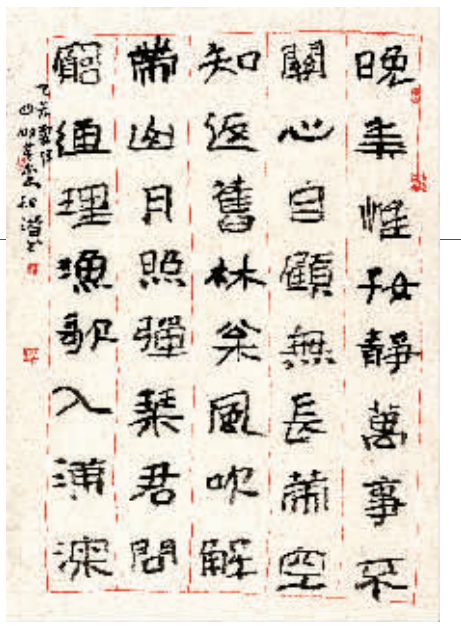 晚年惟好靜萬事不
關心自顧無長策空
知返舊林枀風吹解
帶山月照彈琴君問
窮通理漁歌入浦深